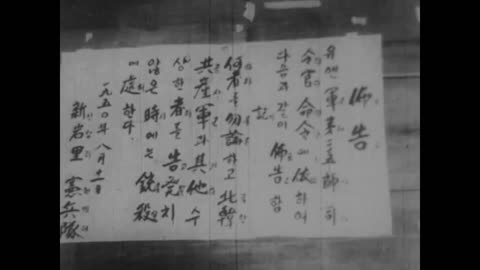 佈告
유엔軍第二五師司
令官 命令에依하여
다음과 같이 佈告함
記
何者를勿論하고 北韓
共産軍과 其他 수
상한 者를 告発치
않은 時에는 銃殺
에 處한다.
一九五〇年八月十一日
新岩里 憲兵隊